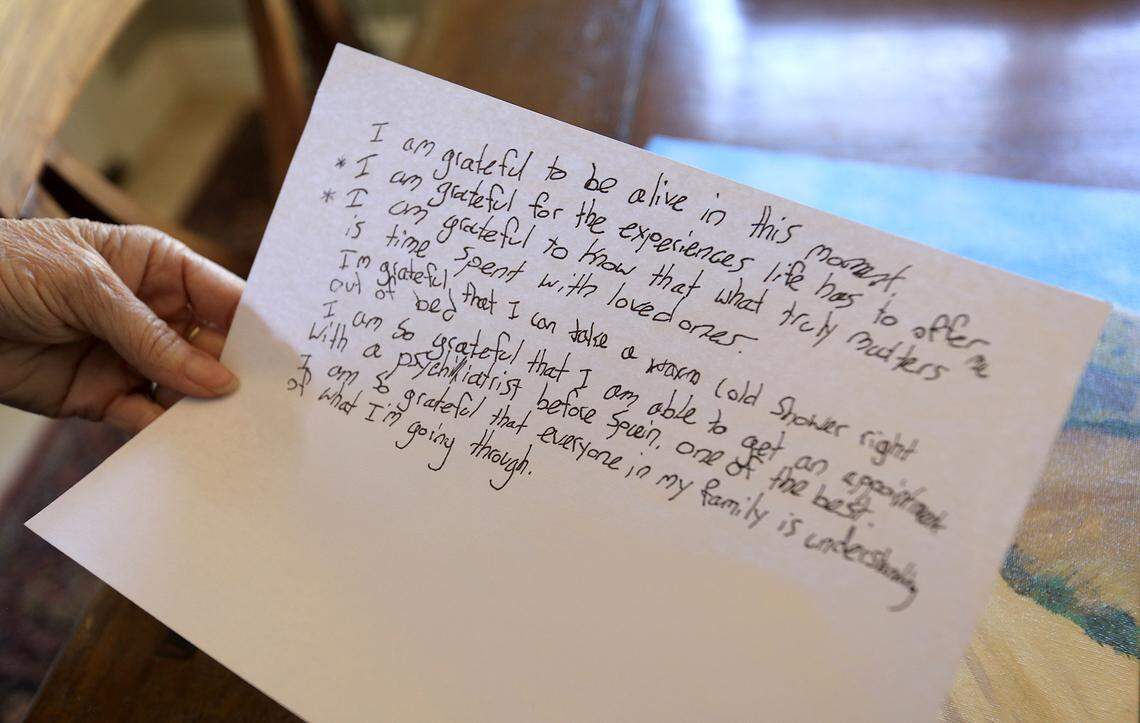 I am grateful to be alive in this moment
* I am grateful for the experiences life has to offer me
* I am grateful to know that what truly matters
is time spent with loved ones.
I'm grateful that I can take a warm cold shower right
out of bed
I am so grateful that I am able to get an appointment
with a psychiatrist before Spain. one of the best.
I am so grateful that everyone in my family is understanding
of what I'm going through.